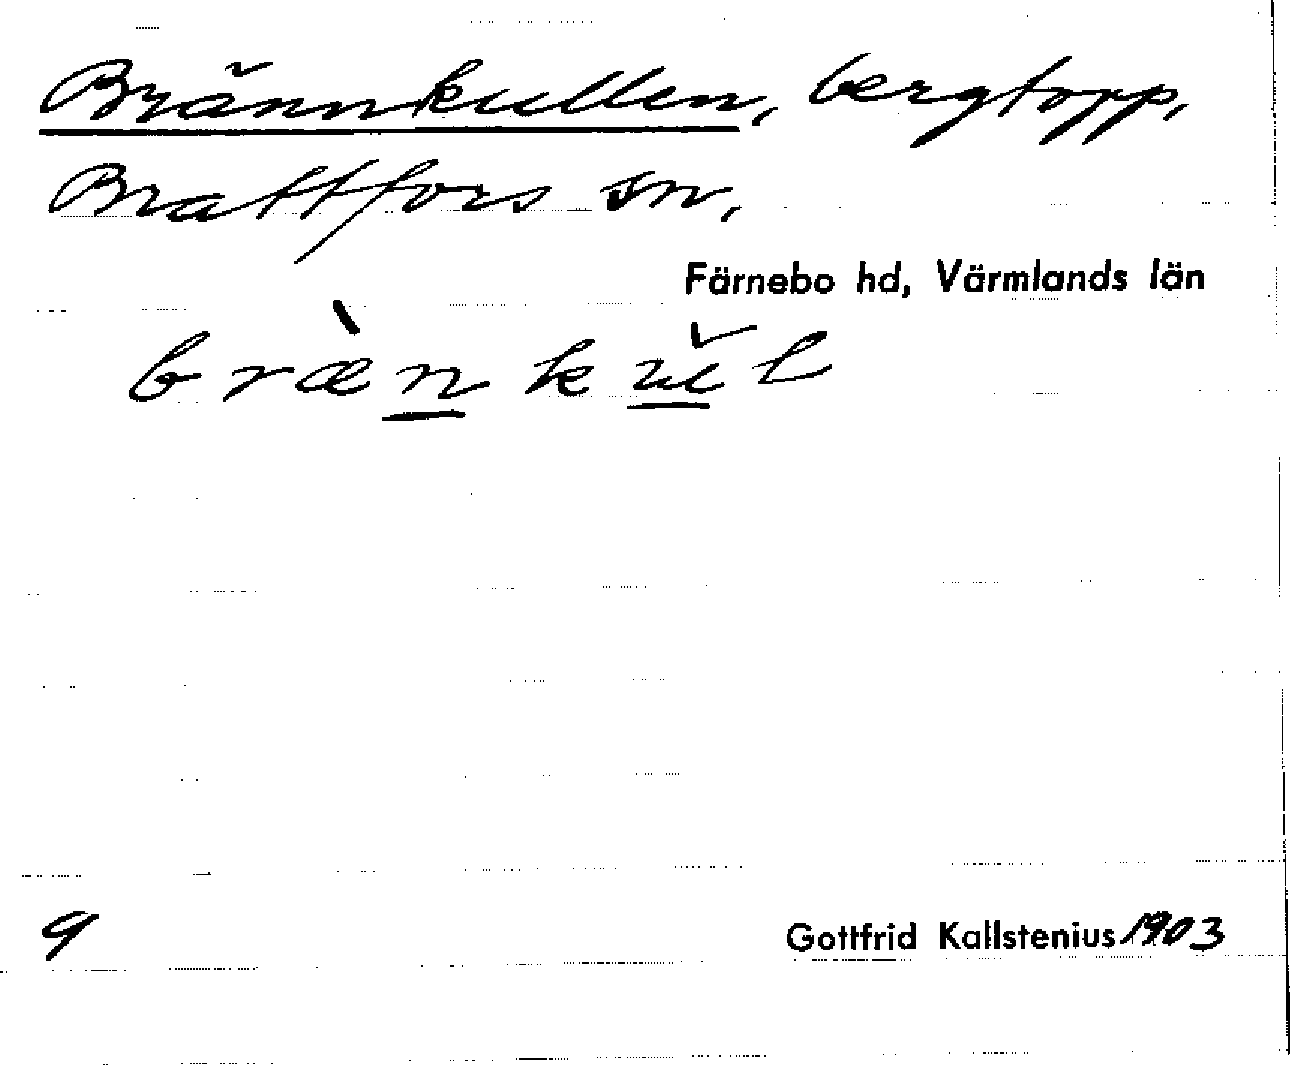 Brännkullen, bergtopp,
Brattfors sn,
Färnebo hd, Värmlands län
bræ̀nkŭl
9
Gottfrid Kallstenius 1903